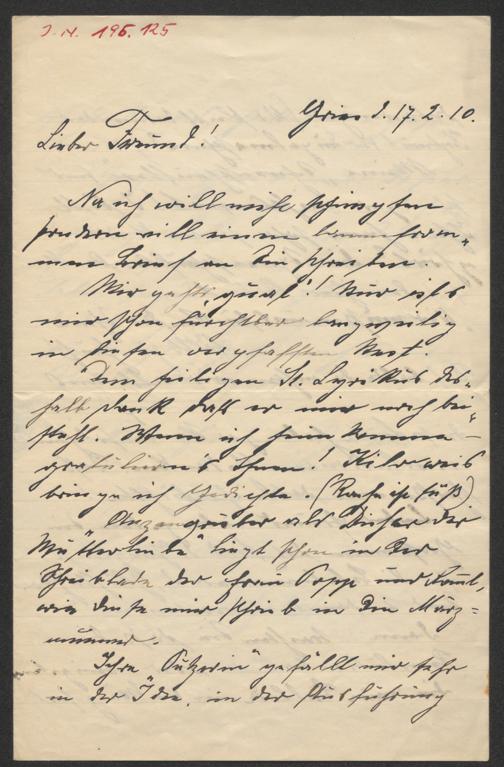 J.N. 195.125
Gries d. 17.2.10.
Lieber Freund!
Na ich will nicht schimpfen
sondern will einen lammfrom-
men Brief an Sie schreiben.
Mir geht's „guat“! Nur ist's
mir schon furchtbar langweilig
in diesem verpfafften Nest.
Dem heiligen St. Lyrikus des-
halb Dank daß er mir noch bei-
steht. Wenn ich heim komme –
gratulier'n S' Ihnen! Kiloweis
bringe ich Gedichte. (Rache ist süß)
„Anzengruber als Dichter der
Mutterliebe“ liegt schon in der
Schreiblade der Frau Popp und kommt,
wie diese mir schrieb in die März-
nummer.
Ihre gefällt mir sehr
in der Idee, in der Ausführung